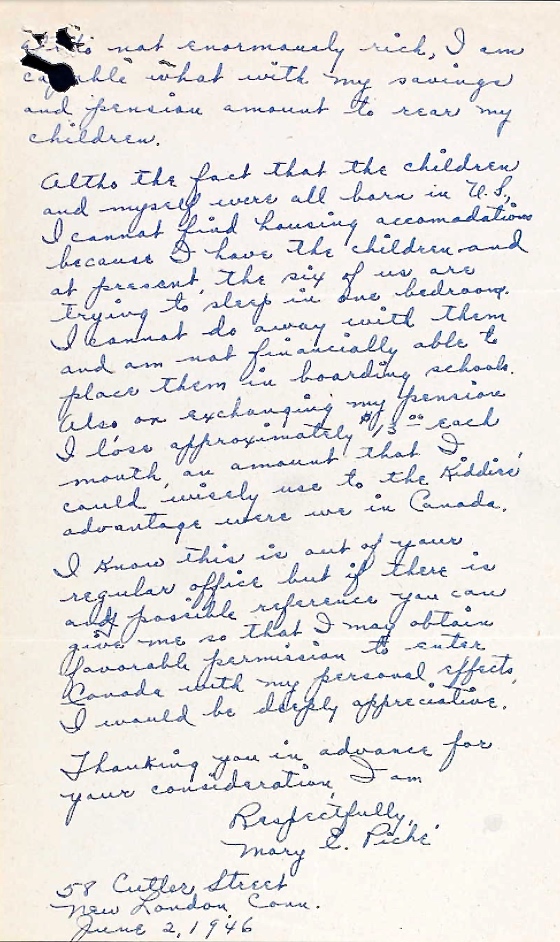 Altho not enormously rich, I am
capable what with my savings
and pension amount to rear my
children.
Altho the fact that the children
and myself were all born in U.S.
I cannot find housing accomadations
because I have the children and
at present, the six of us are
trying to sleep in one bedroom.
I cannot do away with them
and am not financially able to
place them in boarding schools.
Also on exchanging my pension
I lose approximately $13.00 each
month, an amount that I
could wisely use to the Kiddies'
advantage were we in Canada.
I know this is out of your
regular office but if there is
any possible reference you can
give me so that I may obtain
favorable permission to enter
Canada with my personal effects,
I would be deeply appreciative.
Thanking you in advance for
your consideration, I am
Respectfully,
Mary E. Piché
58 Cutler Street
New London, Conn.
June 2, 1946